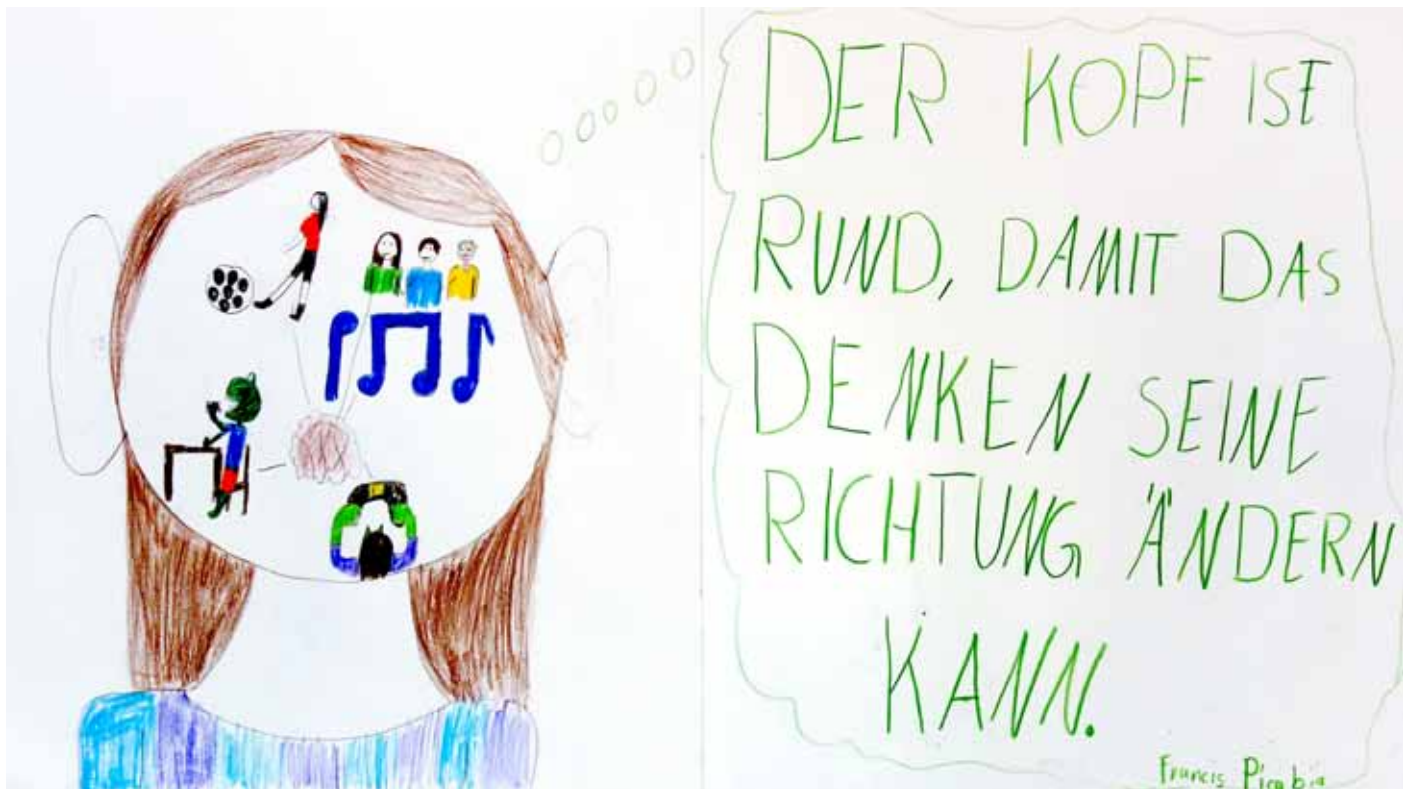 DER KOPF IST
RUND, DAMIT DAS
DENKEN SEINE
RICHTUNG ÄNDERN
KANN.
Francis Picabia